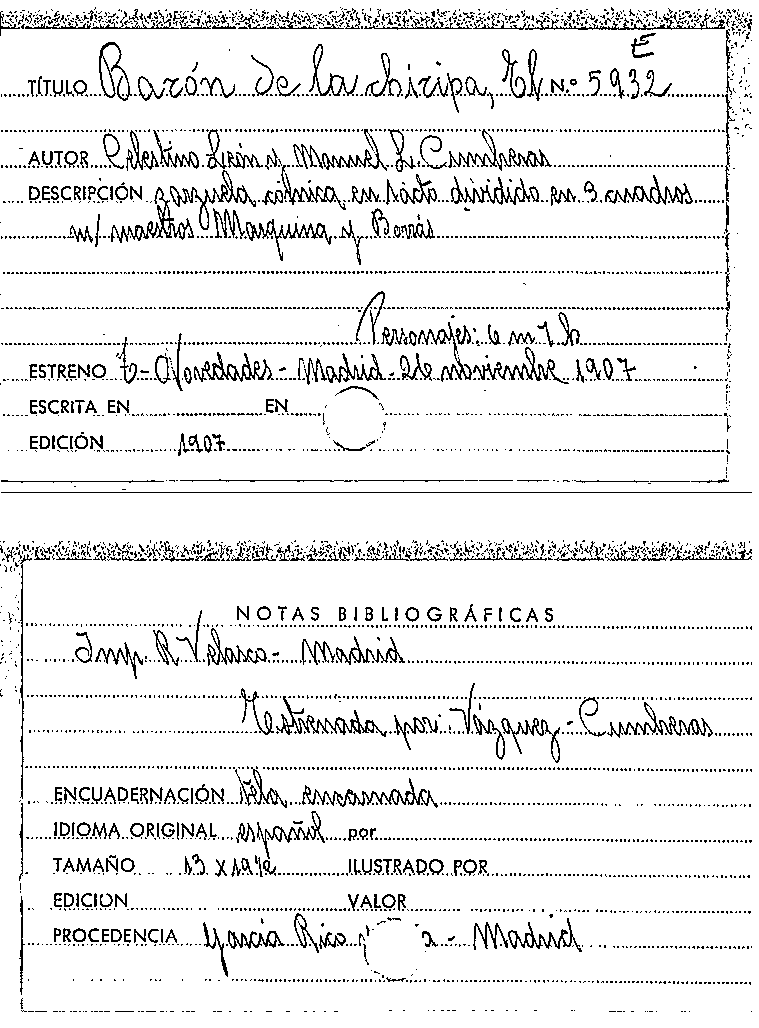 E
TÍTULO Barón de la chiripa, El N.º 5932
AUTOR Celestino León y Manuel L. Cumbreras
DESCRIPCIÓN zarzuela cómica en 1 acto dividido en 3 cuadros
m/ maestros Marquina y Borrás
Personajes: 6 m 7 h
ESTRENO t- Novedades - Madrid - 26 noviembre 1907
ESCRITA EN EN
EDICIÓN 1907
NOTAS BIBLIOGRÁFICAS
Imp. R Velasco - Madrid
Estrenada por: Vázquez - Cumbreras
ENCUADERNACIÓN tela encarnada
IDIOMA ORIGINAL español por
TAMAÑO 13 x 19½ ILUSTRADO POR
EDICION VALOR
PROCEDENCIA García Rico - Madrid